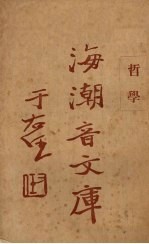 哲學
海潮音文庫
于右任